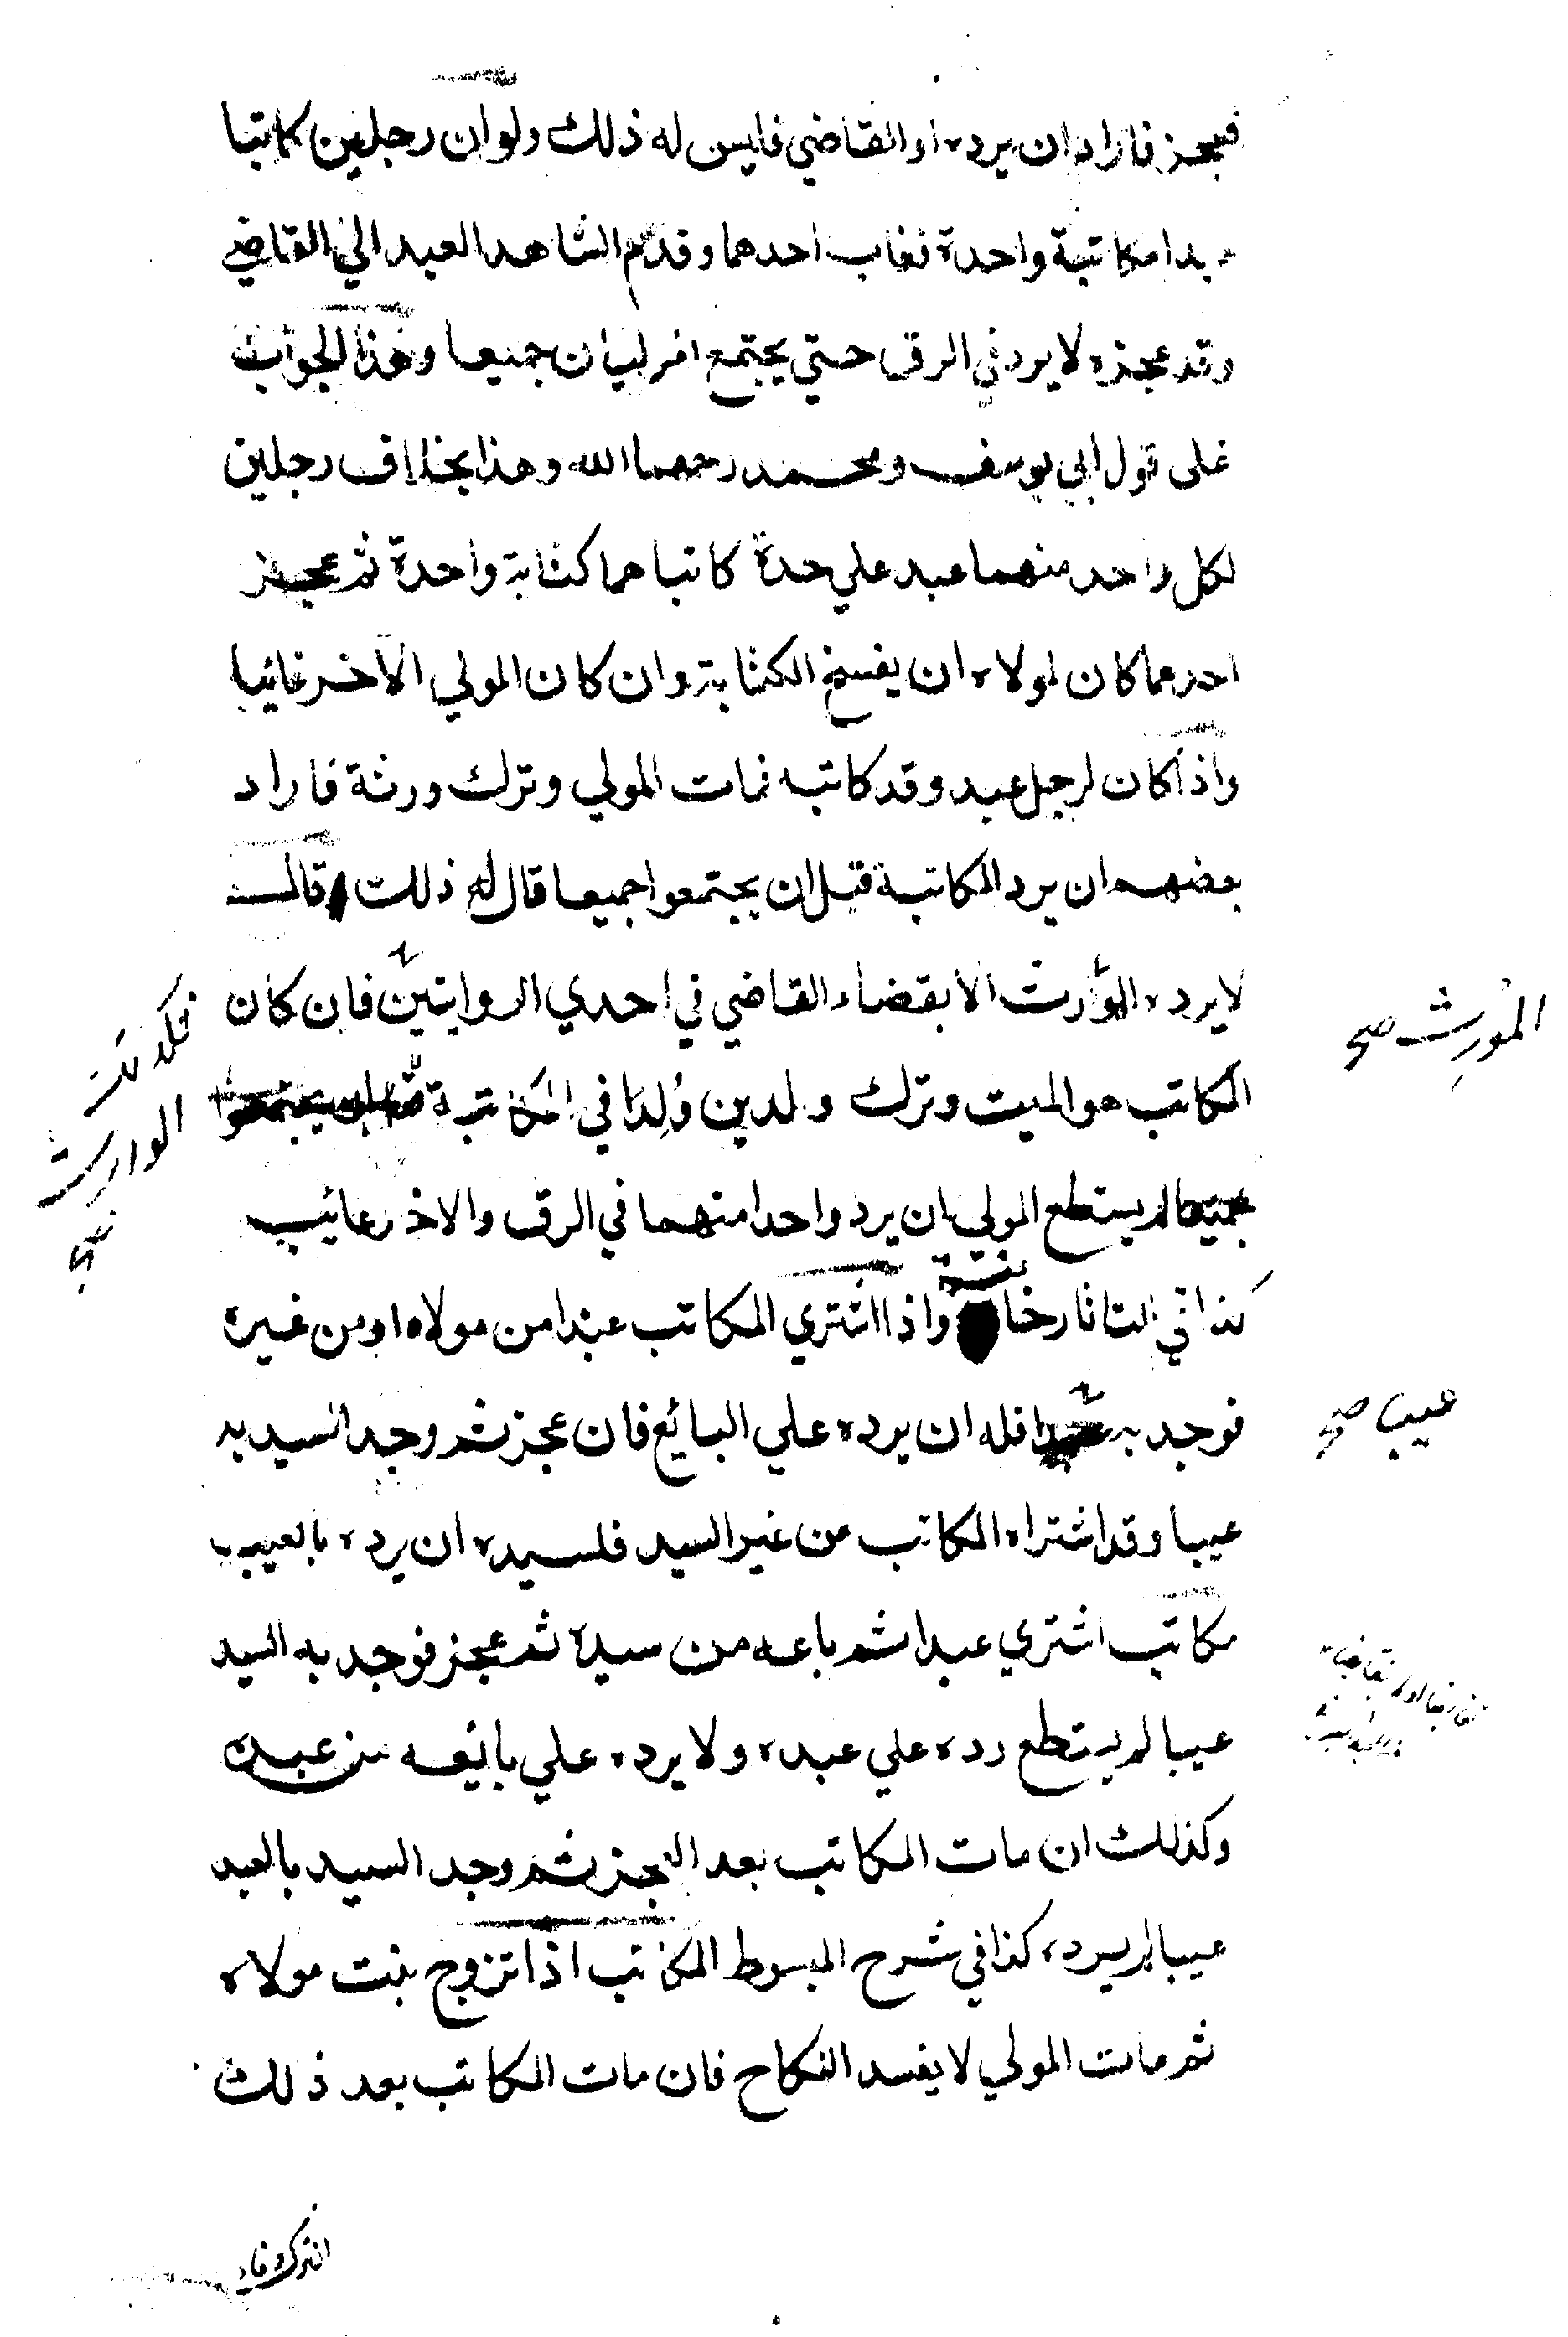 فعجز فاراد ان يرده او القاضي فليس له ذلك ولو ان رجلين كاتبا
عبدا مكاتبة واحدة فغاب احدهما وقدم الشاهد العبد الي القاضي
وقد عجزه لا يرد في الرق حتي يجتمع الموليان جميعا وهذا الجواب
على قول ابي يوسف ومحمد رحمهما الله وهذا بخلاف رجلين
لكل واحد منهما عبد علي حدة كاتباهما كتابة واحدة ثم عجز
احدهما كان لمولاه ان يفسخ الكتابة وان كان المولي الاخر غائبا
واذا كان لرجل عبد وقد كاتبه فمات المولي وترك ورثة فاراد
بعضهم ان يرد المكاتبة قبل ان يجتمعوا جميعا قال له ذلك وقال
لا يرده الوارث الا بقضاء القاضي في احدي الروايتين فان كان
المكاتب هو الميت وترك ولدين ولدا في المكاتبة قبل ان يجتمعوا
جميعا لم يستطع المولي ان يرد واحدا منهما في الرق والاخر غائب
كذا في التاتارخانية واذا اشتري المكاتب عبدا من مولاه او من غيره
فوجد به فله ان يرده علي البائع فان عجز ثم وجد السيد به
عيبا وقد اشتراه المكاتب من غير السيد فلسيده ان يرده بالعيب
مكاتب اشتري عبدا ثم باعه من سيده ثم عجز فوجد به السيد
عيبا لم يستطع رده علي عبده ولا يرده علي بائعه من عبده
وكذلك ان مات المكاتب بعد العجز ثم وجد السيد بالعبد
عيبا لم يرده كذا في شرح المبسوط المكاتب اذا تزوج بنت مولاه
ثم مات المولي لا يفسد النكاح فان مات المكاتب بعد ذلك
المورث صح
الوارث صح
عيب صح